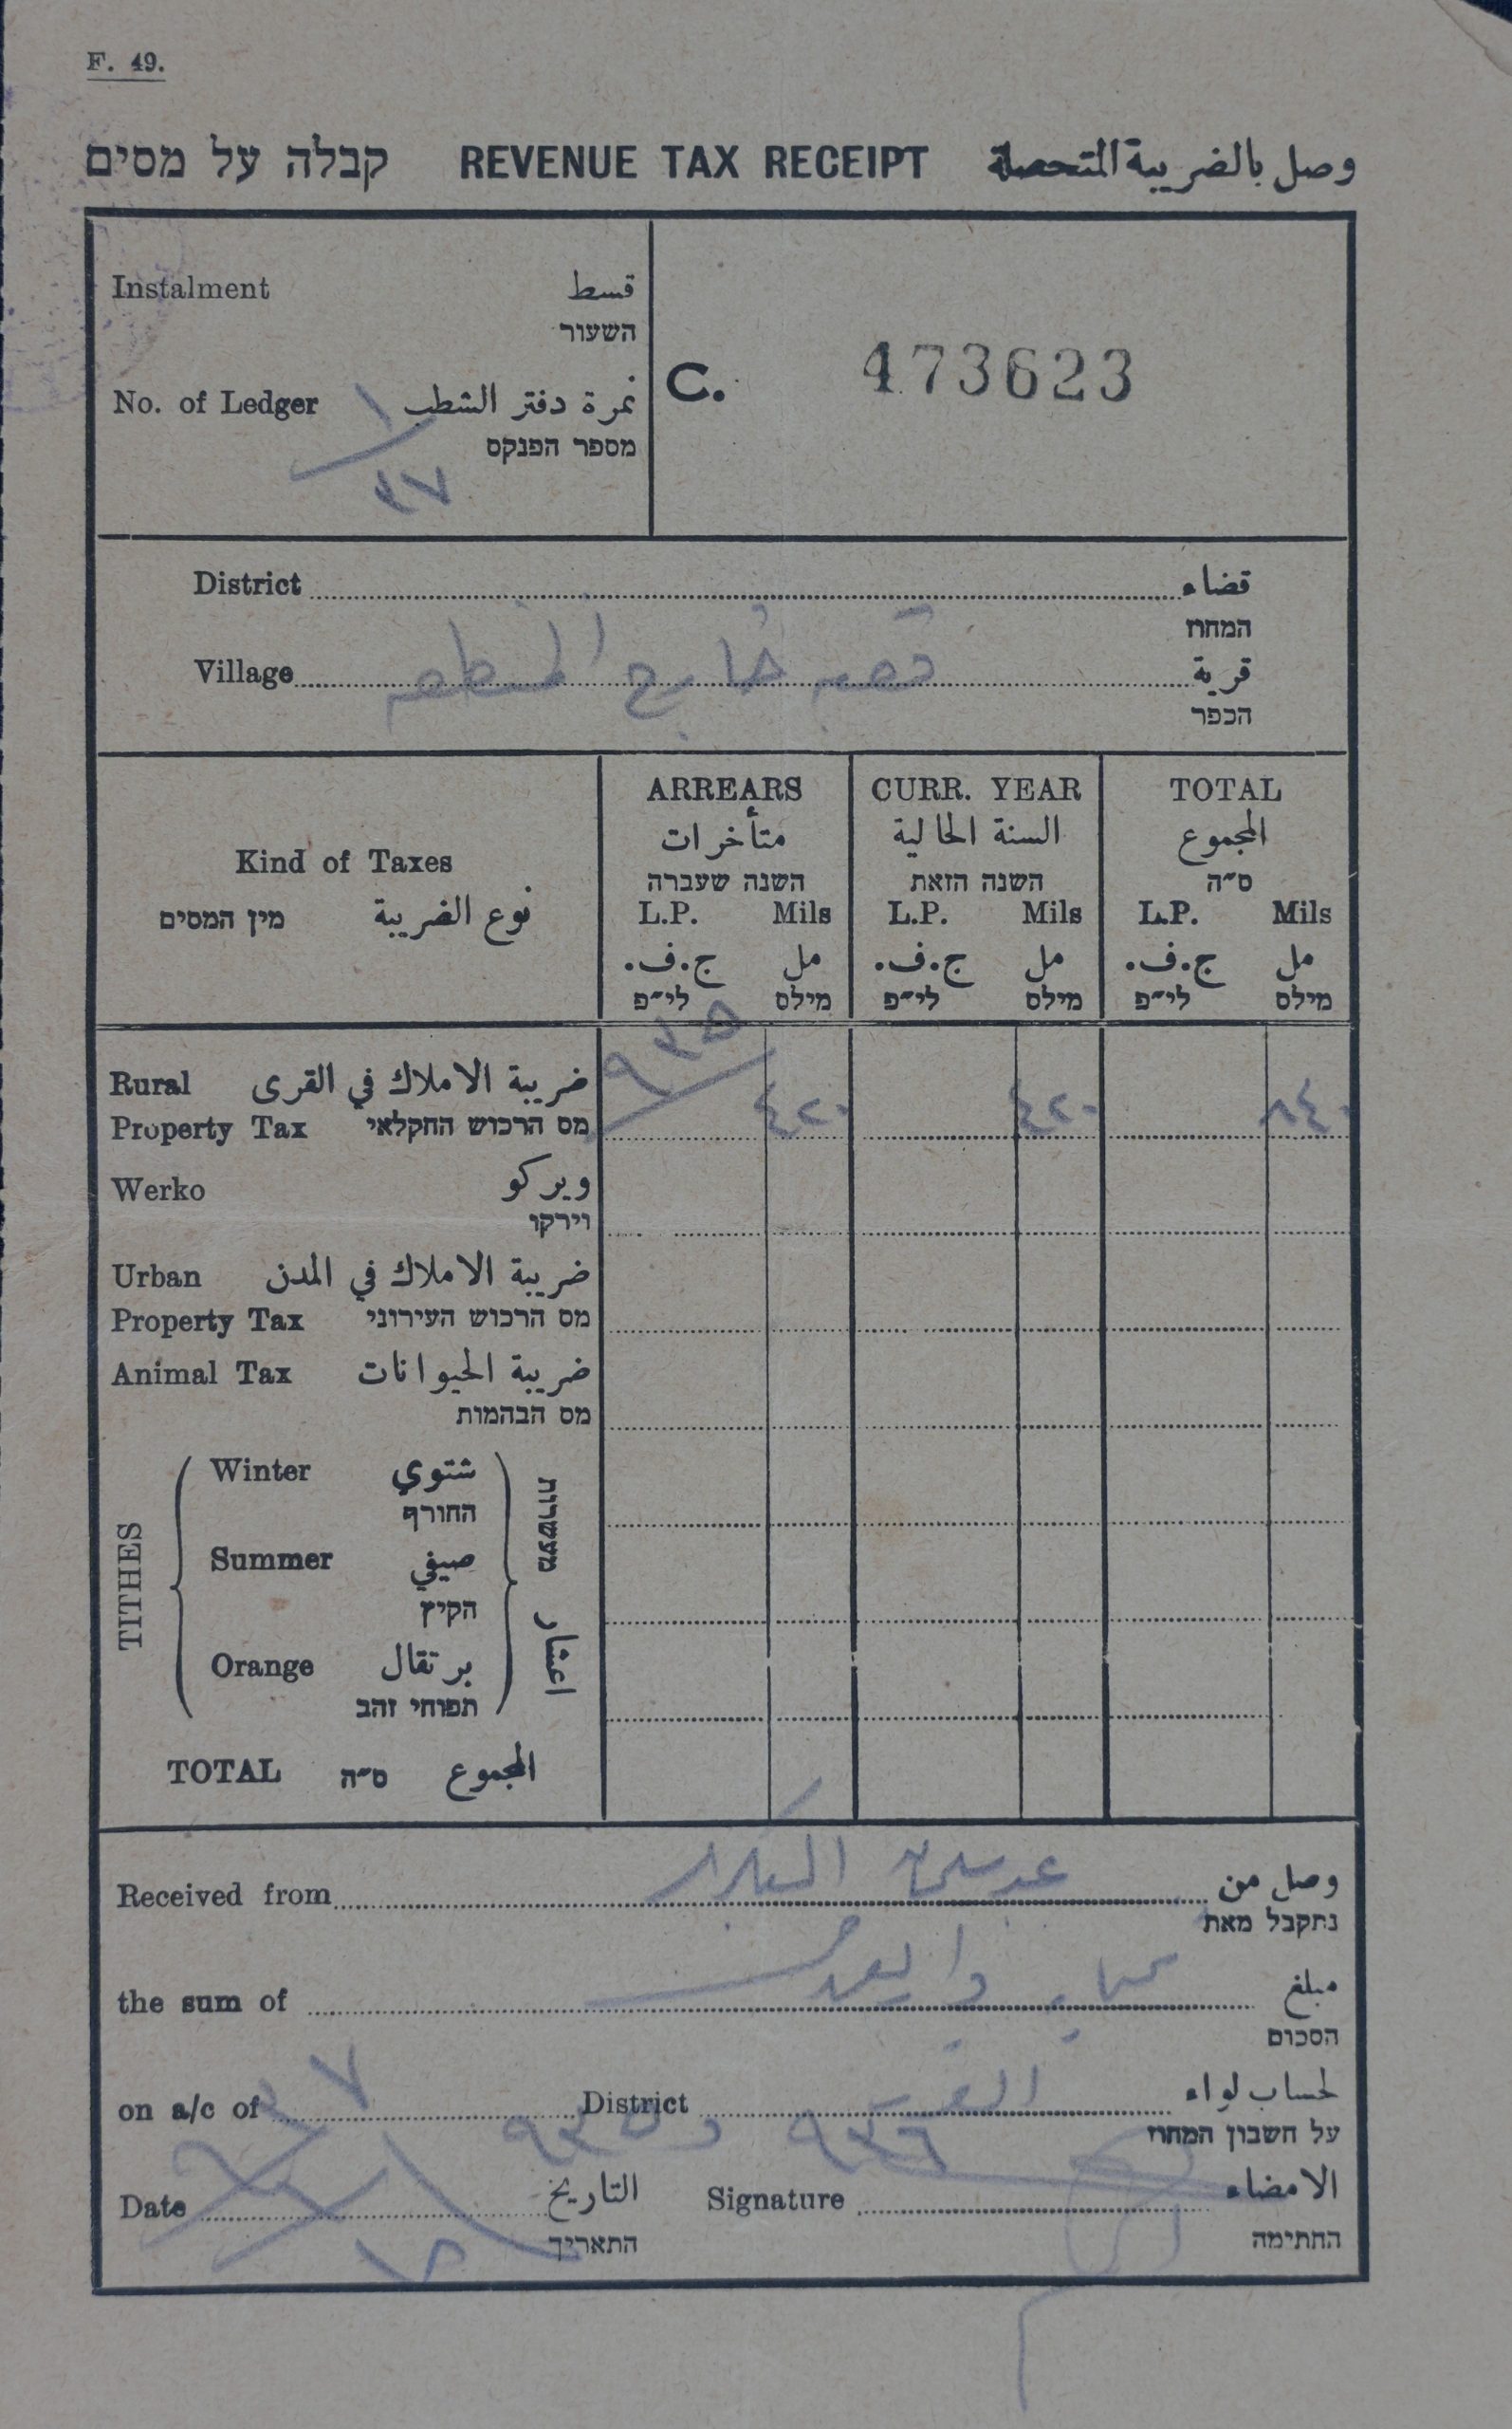 F. 49.
קבלה על מסים REVENUE TAX RECEIPT وصل بالضريبة المتحصلة
Instalment قسط
השעור
No. of Ledger ١ نمرة دفتر الشطب
מספר הפנקס
٢٧
C. 473623
District قضاء
המחוז
Village قرية
הכפר
Kind of Taxes
מין המסים نوع الضريبة
ARREARS CURR. YEAR TOTAL
متأخرات السنة الحالية المجموع
השנה שעברה השנה הזאת ס״ה
L.P. Mils L.P. Mils L.P. Mils
ج.ف. مل ج.ف. مل ج.ف. مل
לי״פ מילס לי״פ מילס לי״פ מילס
٩٣٥
Rural ضريبة الاملاك في القرى ٤٢٠ ٤٢٠ ٨٤٠
Property Tax מס הרכוש החקלאי
Werko ويركو
וירקו
Urban ضريبة الاملاك في المدن
Property Tax מס הרכוש העירוני
Animal Tax ضريبة الحيوانات
מס הבהמות
TITHES מעשרות اعشار
Winter شتوي
החורף
Summer صيفي
הקיץ
Orange برتقال
תפוחי זהב
TOTAL ס״ה المجموع
Received from وصل من
נתקבל מאת
the sum of مبلغ
הסכום
on a/c of District لحساب لواء
על חשבון המחוז
٩٣٦ و ٩٣٥
Date التاريخ Signature الامضاء
התאריך החתימה